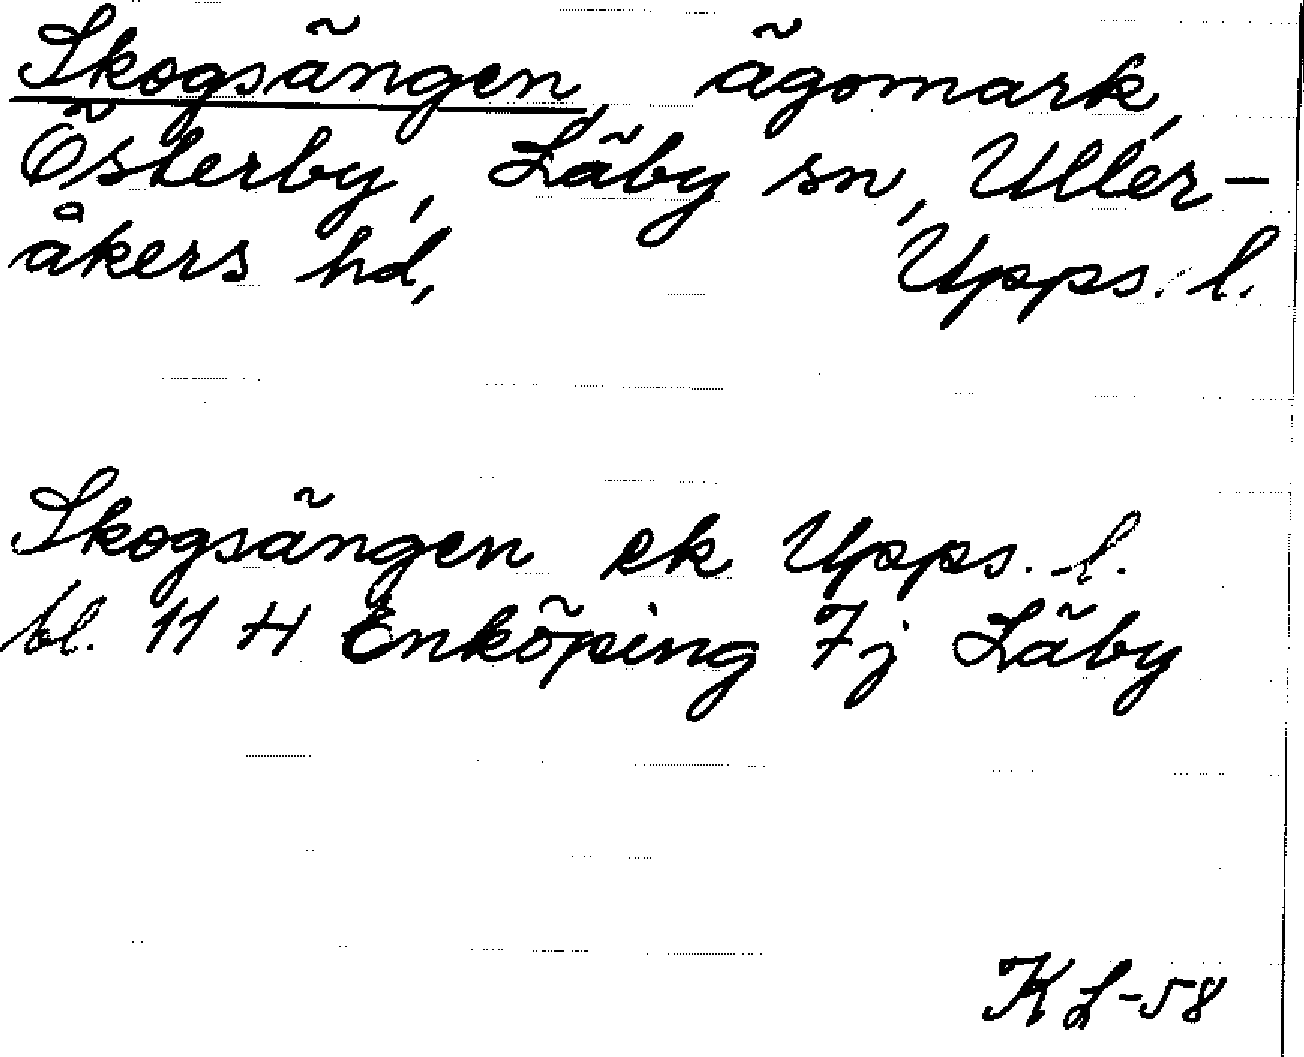 Skogsängen, ägomark,
Österby, Läby sn, Uller-
åkers hd, Upps. l.
Skogsängen ek Upps. l.
bl. 11 H Enköping 7j Läby
KL-58